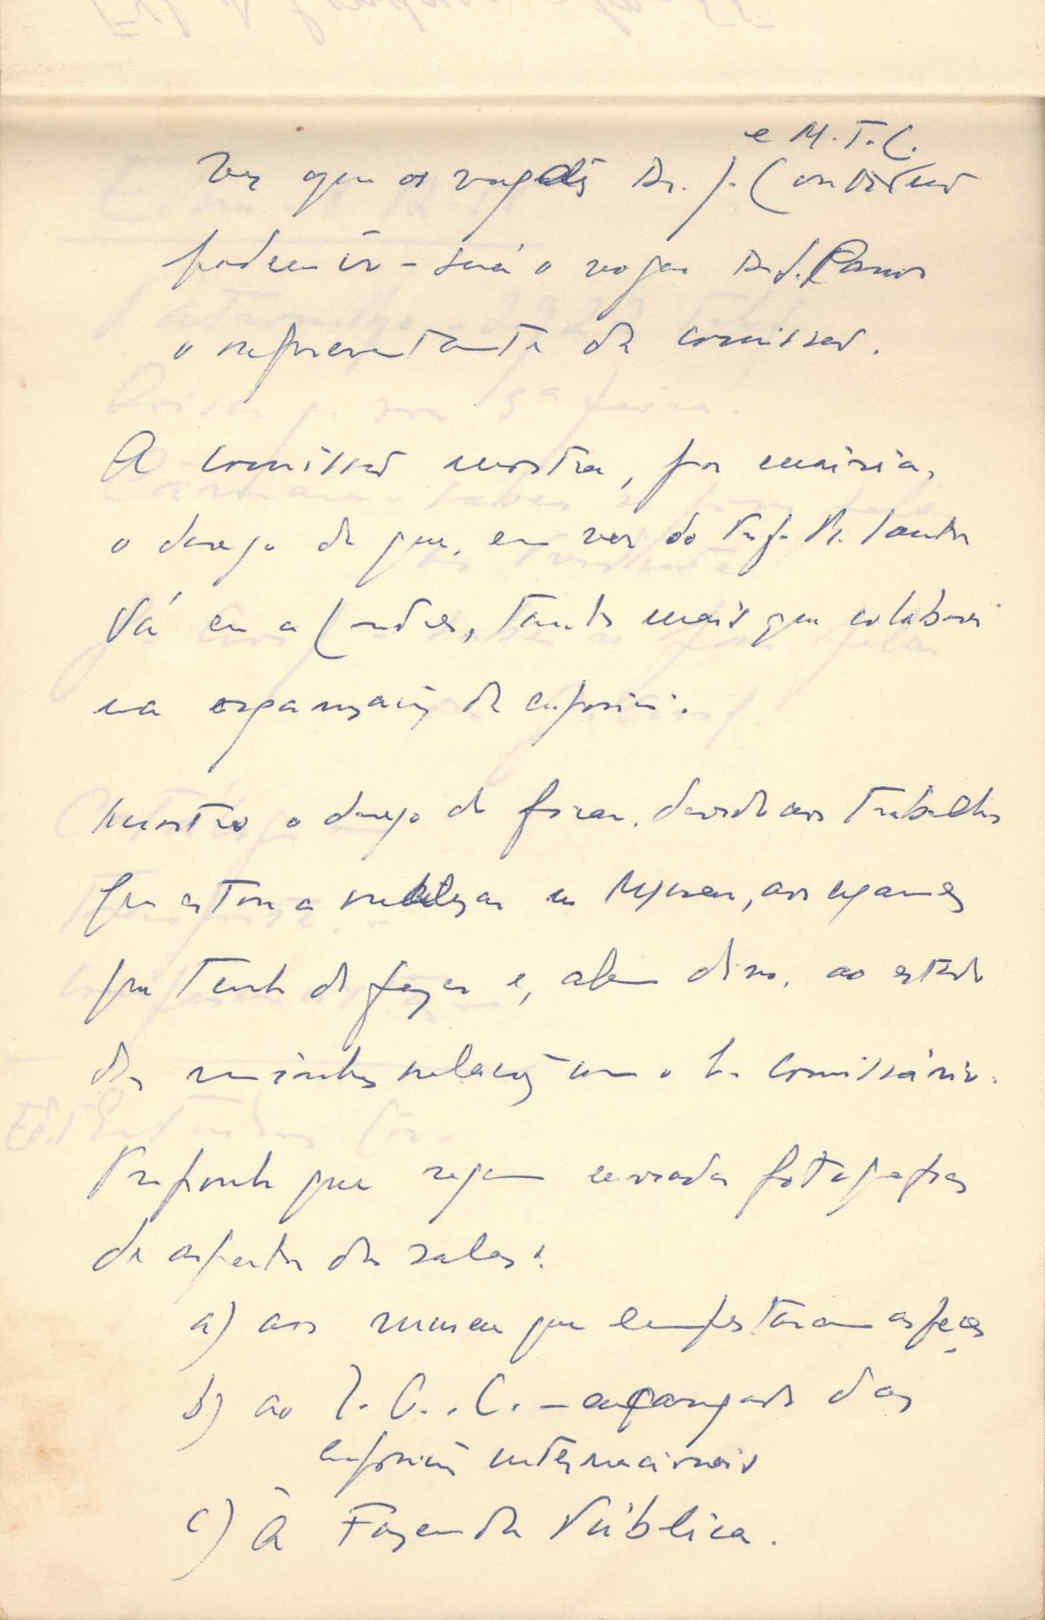 e M.T.C.
vez que os vogais Dr. J. Couto
podem ir - será o vogal Dr. J.
o representante da comissão.
A comissão mostra, por maioria,
o desejo de que, em vez do Prof. R. Santos
vá eu a Londres, tanto mais que colaborei
na organização da exposição.
Mostro o desejo de ficar, devido aos trabalhos
que estou a realizar no Museu, aos exames
que tenho de fazer e, além disso, ao estado
das minhas relações com o S. Comissário.
Proponho que sejam enviadas fotografias
de aspectos das salas:
a) aos museus que emprestaram as peças
b) ao I. C. - encarregado das
exposições internacionais
c) À Fazenda Pública.